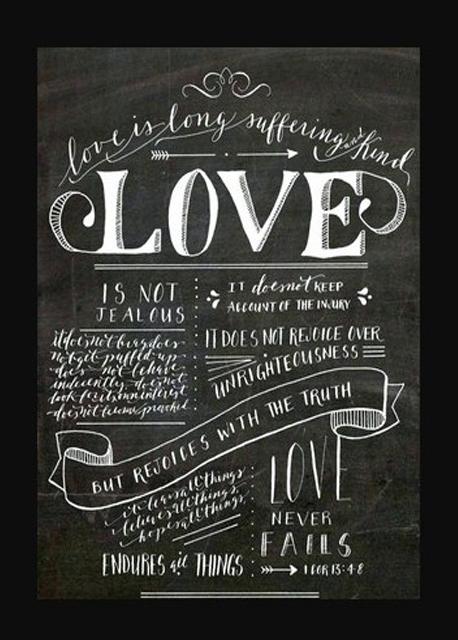 love is long suffering and kind
LOVE
IS NOT
JEALOUS
it does not brag does
not get puffed up
does not behave
indecently does not
look for its own interest
does not become provoked
IT does not KEEP
ACCOUNT OF THE INJURY
IT DOES NOT REJOICE OVER
UNRIGHTEOUSNESS
BUT REJOICES WITH THE TRUTH
it bears all things
believes all things
hopes all things
ENDURES all THINGS
LOVE
NEVER
FAILS
1 COR 13:4-8